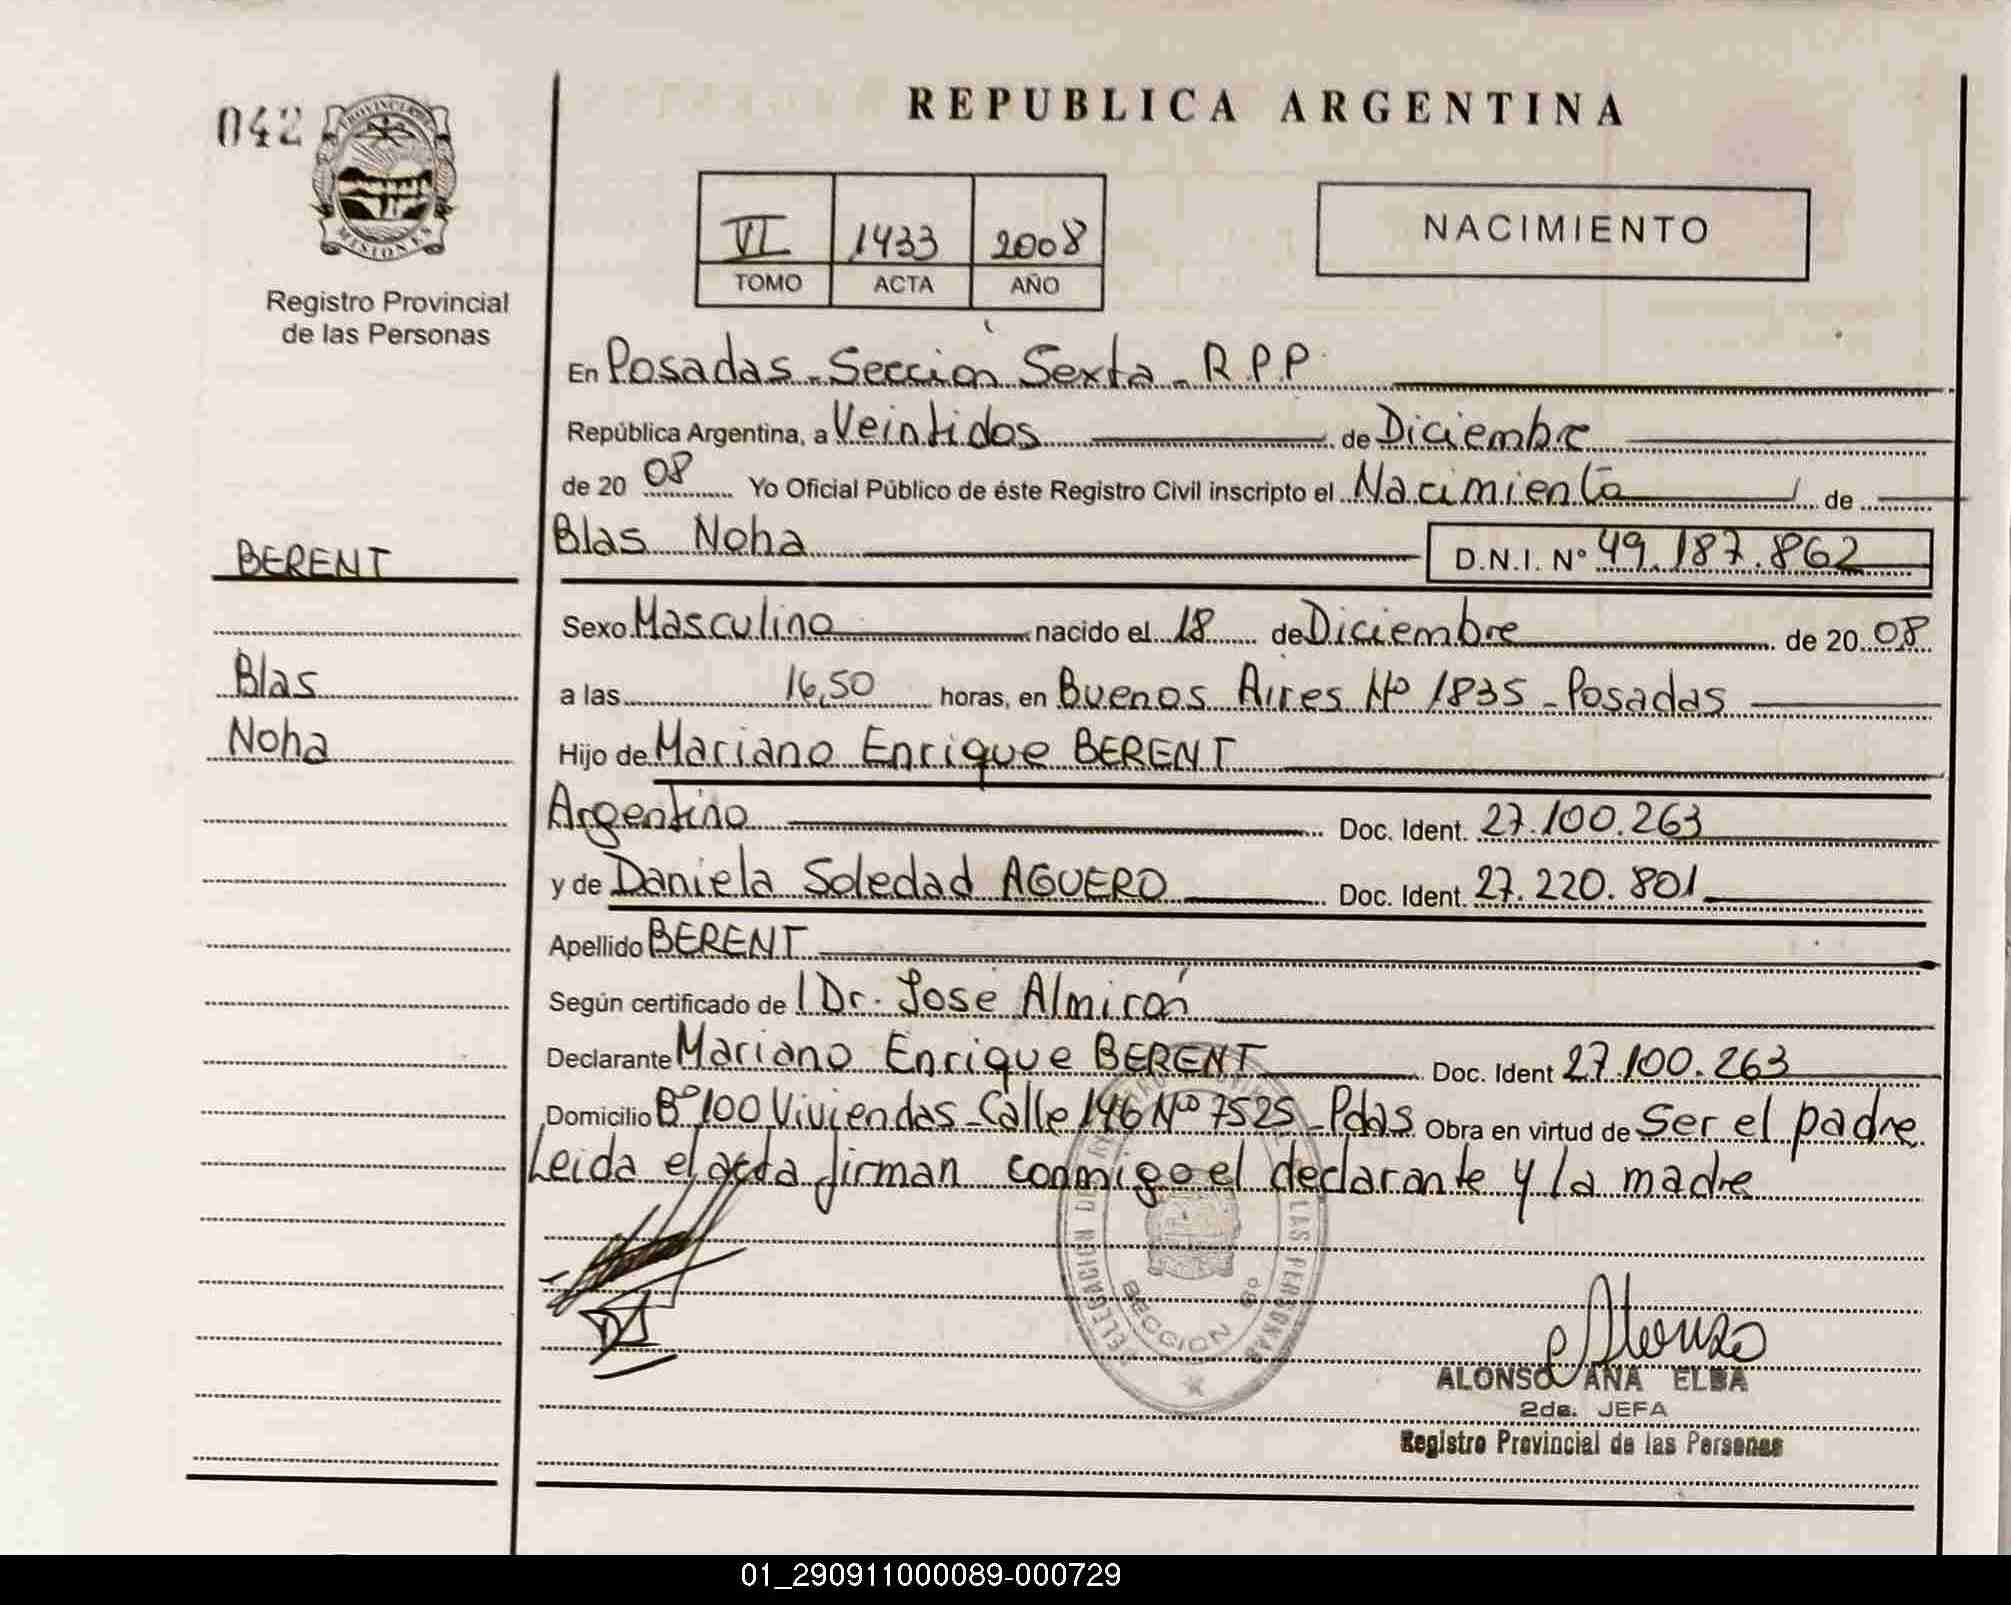 042
PROVINCIA DE
MISIONES
Registro Provincial
de las Personas
BERENT
Blas
Noha
REPUBLICA ARGENTINA
VI 1433 2008
TOMO ACTA AÑO
NACIMIENTO
En Posadas - Sección Sexta - R.P.P.
República Argentina, a Veintidos de Diciembre
de 20 08 Yo Oficial Público de éste Registro Civil inscripto el Nacimiento de
Blas Noha D.N.I. Nº 49.187.862
Sexo Masculino nacido el 18 de Diciembre de 20 08
a las 16,50 horas, en Buenos Aires Nº 1835 - Posadas
Hijo de Mariano Enrique BERENT
Argentino Doc. Ident. 27.100.263
y de Daniela Soledad AGUERO Doc. Ident. 27.220.801
Apellido BERENT
Según certificado de l Dr. José Almirón
Declarante Mariano Enrique BERENT Doc. Ident 27.100.263
Domicilio Bº 100 Viviendas - Calle 146 Nº 7525 - Pdas Obra en virtud de Ser el padre
Leida el acta firman conmigo el declarante y la madre
DELEGACION DE REGISTRO PROVINCIAL DE LAS PERSONAS
SECCION 6º
Alonso
ALONSO ANA ELBA
2da. JEFA
Registro Provincial de las Personas
01_290911000089-000729